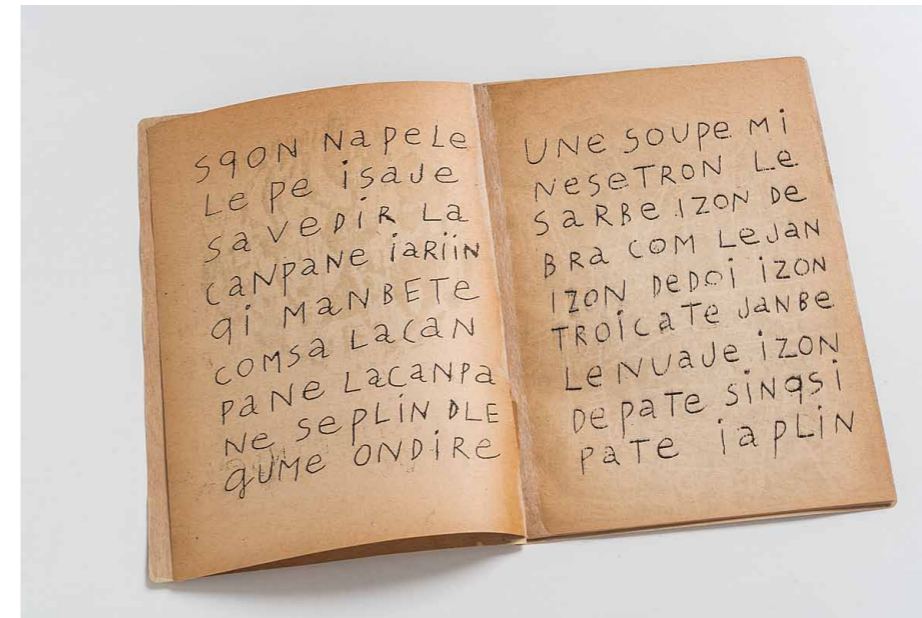 SqON NaPeLe
Le Pe iSaJe
SaVeDiR La
CaNPaNe iaRiiN
qi MaNBETE
COMSa LaCaN
PaNe LaCaNPa
Ne SePLiN DLE
gUMe ONDiRe
UNe SOUPe Mi
NeSeTRON Le
SaRBe iZON De
BRa COM LeJaN
iZON DeDOi iZON
TROiCaTe JaNBe
Le NUaJe iZON
DePaTe SiNqSi
PaTe iaPLiN